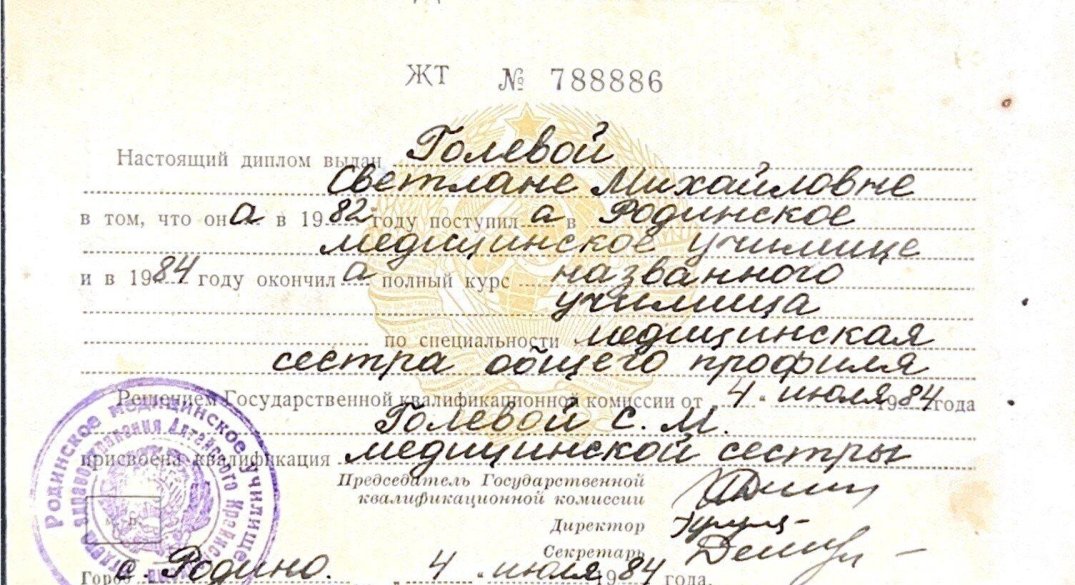 ЖТ № 788886
Настоящий диплом выдан Голевой
Светлане Михайловне
в том, что она в 1982 году поступила в Родинское
медицинское училище
и в 1984 году окончила полный курс названного
училища
по специальности медицинская
сестра общего профиля
Решением Государственной квалификационной комиссии от 4 июля 1984 года
Голевой С. М.
присвоена квалификация медицинской сестры
Председатель Государственной
квалификационной комиссии
Директор
Секретарь
Город с. Родино. 4 июля 1984 года.
Родинское медицинское училище
Алтайского края